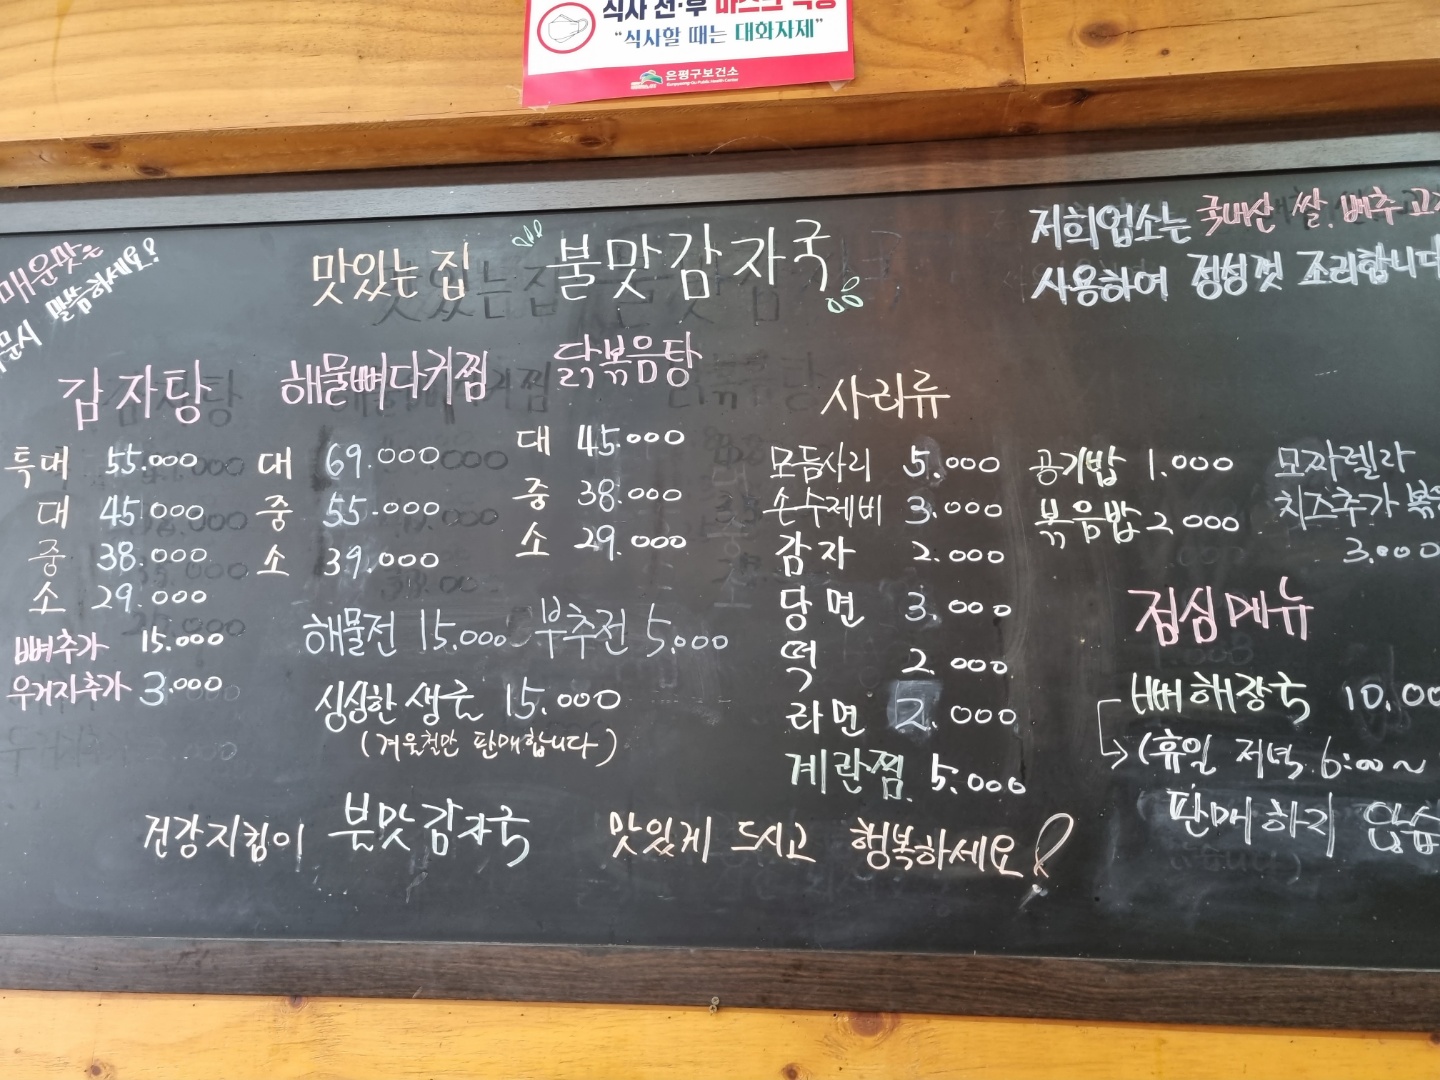 식사 전·후
"식사할 때는 대화자제"
은평구보건소
매운맛은
말씀하세요?
맛있는 집 불맛감자국
저희업소는 국내산 쌀. 배추
사용하여 정성껏 조리합니다
감자탕
특대 55.000
대 45.000
중 38.000
소 29.000
뼈추가 15.000
우거지추가 3.000
해물뼈다귀찜
대 69.000
중 55.000
소 39.000
닭볶음탕
대 45.000
중 38.000
소 29.000
해물전 15.000 부추전 5.000
싱싱한 생굴 15.000
(겨울철만 판매합니다)
사리류
모듬사리 5.000
손수제비 3.000
감자 2.000
당면 3.000
떡 2.000
라면 2.000
계란찜 5.000
공기밥 1.000
볶음밥 2000
모짜렐라
치즈추가
3.000
점심메뉴
뼈해장국
(휴일 저녁 6:00~
판매하지
건강지킴이 불맛감자국 맛있게 드시고 행복하세요!